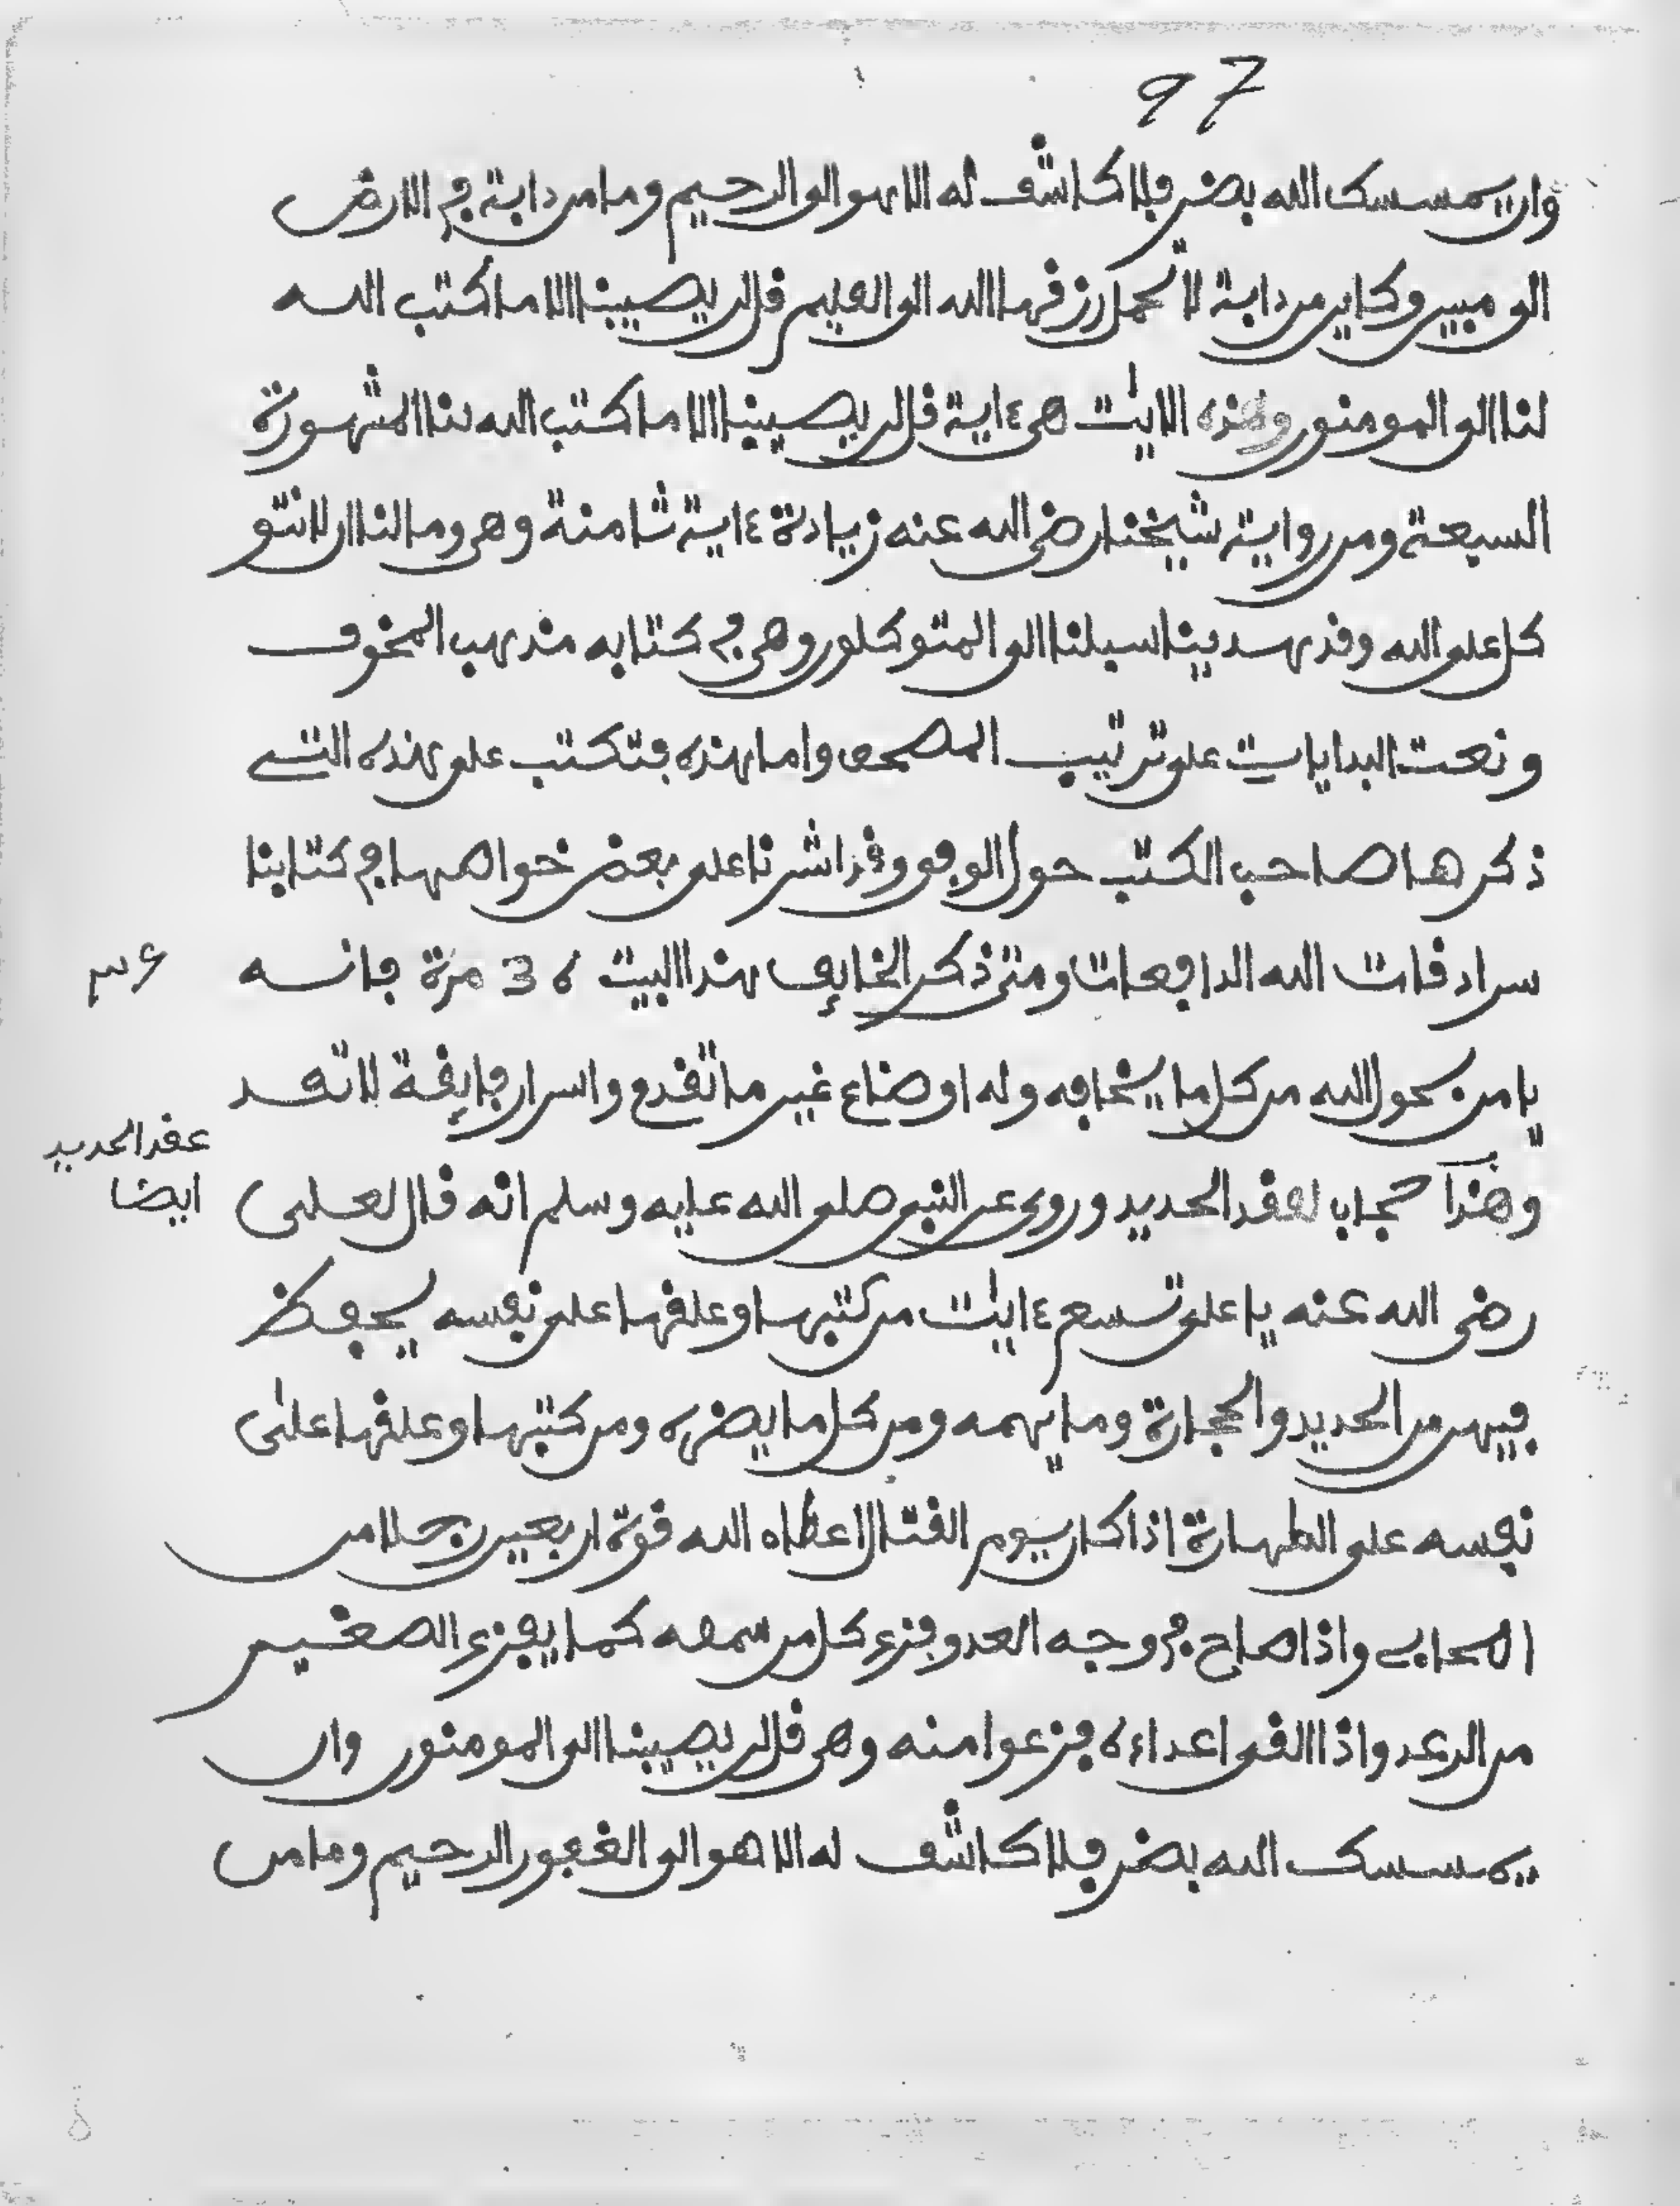 97
وان يمسسك الله بضر فلا كاشف له الا هو الى الرحيم وما من دابة في الارض
الى مبين وكاين من دابة لا تحمل رزقها الله الى العليم قل لن يصيبنا الا ما كتب الله
لنا الى المومنون وهذه الايت هي ءاية قل لن يصيبنا الا ما كتب الله لنا المشهورة
السبعة ومن رواية شيخنا رضي الله عنه زيادة ءاية ثامنة وهي وما لنا ان لا نتو
كل على الله وقد هدينا سبلنا الى المتوكلون وهي في كتابه مذهب المخوف
ونعت البدايات على ترتيب المصحف واما هذه فتكتب على هذه التي
ذكرها صاحب الكتب حول الوفق وقد اشرنا على بعض خواصها في كتابنا
سرادقات الله الدافعات ومتى ذكر الخايف هذا البيت 36 مرة فانه
٣٦
يا من يحول الله من كل ما يخافه وله اوضاع غير ما تقدم واسرار فايقة لا تعد
عقد الحديد
ايضا
وهذا حجاب لعقد الحديد وروي عن النبي صلى الله عليه وسلم انه قال لعلي
رضي الله عنه يا علي تسع ءايت من كتبها وعلقها على نفسه يحفظ
فيهن من الحديد والحجارة وما يهمه ومن كل ما يضره ومن كتبها وعلقها على
نفسه على الطهارة اذا كان يوم القتال اعطاه الله قوة اربعين رجلا من
اصحابي واذا صاح في وجه العدو فزع كل من سمعه كما يفزع الصغير
من الرعد واذا القى اعداءه فزعوا منه وهي قل لن يصيبنا الى المومنون وان
يمسسك الله بضر فلا كاشف له الا هو الى الغفور الرحيم وما من